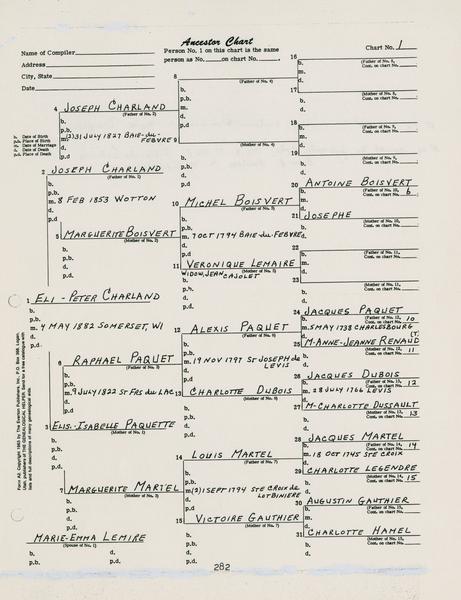 Ancestor Chart
Name of Compiler
Person No. 1 on this chart is the same
person as No. on chart No.
Chart No. 1
Address
City, State
Date
16
b. (Father of No. 8,
m. Cont. on chart No.
d.
8
(Father of No. 4)
b.
p.b.
m.
d.
p.d.
17
b. (Mother of No. 8,
d. Cont. on chart No.
4 JOSEPH CHARLAND
(Father of No. 2)
b.
p.b.
m. (2) 31 JULY 1827 BAIE-du-
FEBVRE
d.
p.d
b. Date of Birth
p.b. Place of Birth
m. Date of Marriage
d. Date of Death
p.d. Place of Death
18
b. (Father of No. 9,
m. Cont. on chart No.
d.
9
(Mother of No. 4)
b.
p.b.
d.
p.d.
19
b. (Mother of No. 9,
d. Cont. on chart No.
2 JOSEPH CHARLAND
(Father of No. 1)
b.
p.b.
m. 8 FEB 1853 WOTTON
d.
p.d
20 ANTOINE BOISVERT
b. (Father of No. 10, 6
m. Cont. on chart No.
d.
10 MICHEL BOISVERT
(Father of No. 5)
b.
p.b.
m. 7 OCT 1794 BAIE-du-FEBVRE
d.
p.d.
21 JOSEPHE
b. (Mother of No. 10,
d. Cont. on chart No.
5 MARGUERITE BOISVERT
(Mother of No. 2)
b.
p.b.
d.
p.d.
22
b. (Father of No. 11,
m. Cont. on chart No.
d.
11 VERONIQUE LEMAIRE
(Mother of No. 5)
WIDOW, JEAN CAJOLET
b.
p.b.
d.
p.d.
23
b. (Mother of No. 11,
d. Cont. on chart No.
1 ELI-PETER CHARLAND
b.
p.b.
m. 4 MAY 1882 SOMERSET, WI
d.
p.d.
24 JACQUES PAQUET
b. (Father of No. 12, 10
m. 5 MAY 1738 CHARLESBOURG
d.
12 ALEXIS PAQUET
(Father of No. 6)
b.
p.b.
m. 19 NOV 1797 ST JOSEPH de
LEVIS
d.
p.d.
25 M-ANNE-JEANNE RENAUD
b. (Mother of No. 12, 11
d. Cont. on chart No.
6 RAPHAEL PAQUET
(Father of No. 3)
b.
p.b.
m. 9 JULY 1822 ST FRS du LAC
d.
p.d.
26 JACQUES DUBOIS
b. (Father of No. 13, 12
m. 28 JULY 1766 LEVIS
d.
13 CHARLOTTE DUBOIS
(Mother of No. 6)
b.
p.b.
d.
p.d.
27 M-CHARLOTTE DUSSAULT
b. (Mother of No. 13, 13
d. Cont. on chart No.
3 ELIS-ISABELLE PAQUETTE
(Mother of No. 1)
b.
p.b.
d.
p.d.
28 JACQUES MARTEL
b. (Father of No. 14, 14
m. 18 OCT 1745 STE CROIX
d.
14 LOUIS MARTEL
(Father of No. 7)
b.
p.b.
m. (2) 1 SEPT 1794 STE CROIX de
LOTBINIERE
d.
p.d.
29 CHARLOTTE LEGENDRE
b. (Mother of No. 14, 15
d. Cont. on chart No.
7 MARGUERITE MARTEL
(Mother of No. 3)
b.
p.b.
d.
p.d.
30 AUGUSTIN GAUTHIER
b. (Father of No. 15,
m. Cont. on chart No.
d.
15 VICTOIRE GAUTHIER
(Mother of No. 7)
b.
p.b.
d.
p.d.
31 CHARLOTTE HAMEL
b. (Mother of No. 15,
d. Cont. on chart No.
MARIE-EMMA LEMIRE
(Spouse of No. 1)
b. d.
p.b. p.d.
Form A2. Copyright 1963 by The Everton Publishers, Inc. P.O. Box 368, Logan
Utah, publishers of THE GENEALOGICAL HELPER. Send for a free catalogue with
lists and full descriptions of many genealogical aids.
282